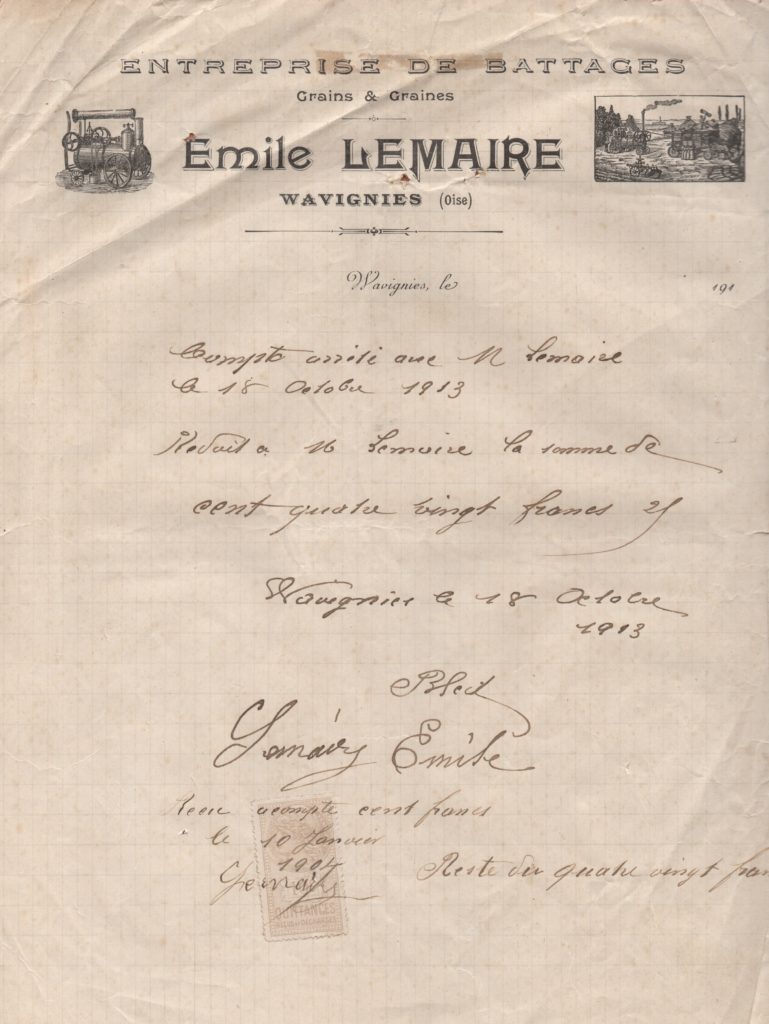 ENTREPRISE DE BATTAGES
Grains & Graines
Emile LEMAIRE
WAVIGNIES (Oise)
Wavignies, le 191
Compte arrêté avec M Lemaire
le 18 Octobre 1913
Redoit a M Lemaire la somme de
cent quatre vingt francs
Wavignies le 18 Octobre
1913
Lemaire Emile
Recu acompte cent francs
le 10 Janvier
Lemaire
Reste du quatre vingt fran
QUITTANCES